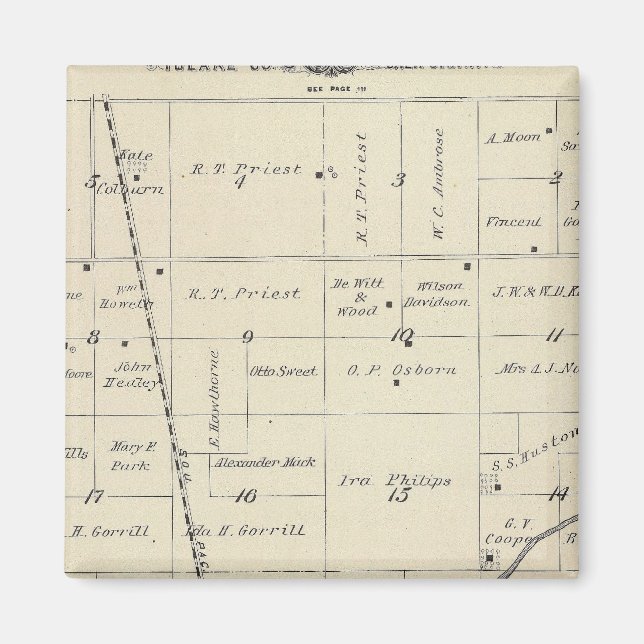 TULARE CO.
SEE PAGE 111
Kate
Colburn
5
R. T. Priest
4
R. T. Priest
3
W. C. Ambrose
A. Moon
2
Vincent
Wm
Howeth
R. T. Priest
De Witt
&
Wood
Wilson
Davidson
J. W. & W. D.
8
9
10
11
John
Healey
E. Hawthorne
Otto Sweet
O. P. Osborn
Mrs A. J.
Mary E.
Park
SOU.
PAC.
Alexander Mack
Ira Philips
S. S. Huston
17
16
15
14
H. Gorrill
Ida H. Gorrill
G. V.
Cooper